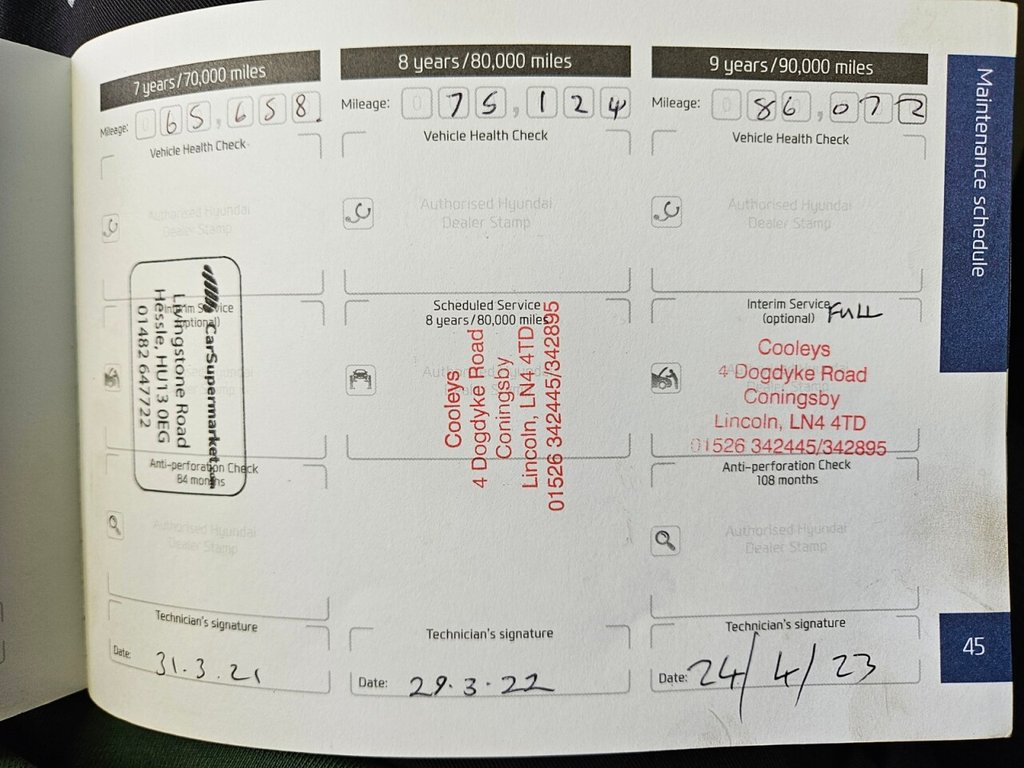 7 years/70,000 miles
Mileage: 0 65,658.
Vehicle Health Check
Authorised Hyundai
Dealer Stamp
Interim Service
(optional)
CarSupermarket.com
Livingstone Road
Hessle, HU13 0EG
01482 647722
Anti-perforation Check
84 months
Authorised Hyundai
Dealer Stamp
Technician's signature
Date: 31.3.21
8 years/80,000 miles
Mileage: 0 75,124
Vehicle Health Check
Authorised Hyundai
Dealer Stamp
Scheduled Service
8 years/80,000 miles
Cooleys
4 Dogdyke Road
Coningsby
Lincoln, LN4 4TD
01526 342445/342895
Technician's signature
Date: 29.3.22
9 years/90,000 miles
Mileage: 0 86,072
Vehicle Health Check
Authorised Hyundai
Dealer Stamp
Interim Service FULL
(optional)
Cooleys
4 Dogdyke Road
Coningsby
Lincoln, LN4 4TD
01526 342445/342895
Anti-perforation Check
108 months
Authorised Hyundai
Dealer Stamp
Technician's signature
Date: 24/4/23
Maintenance schedule
45